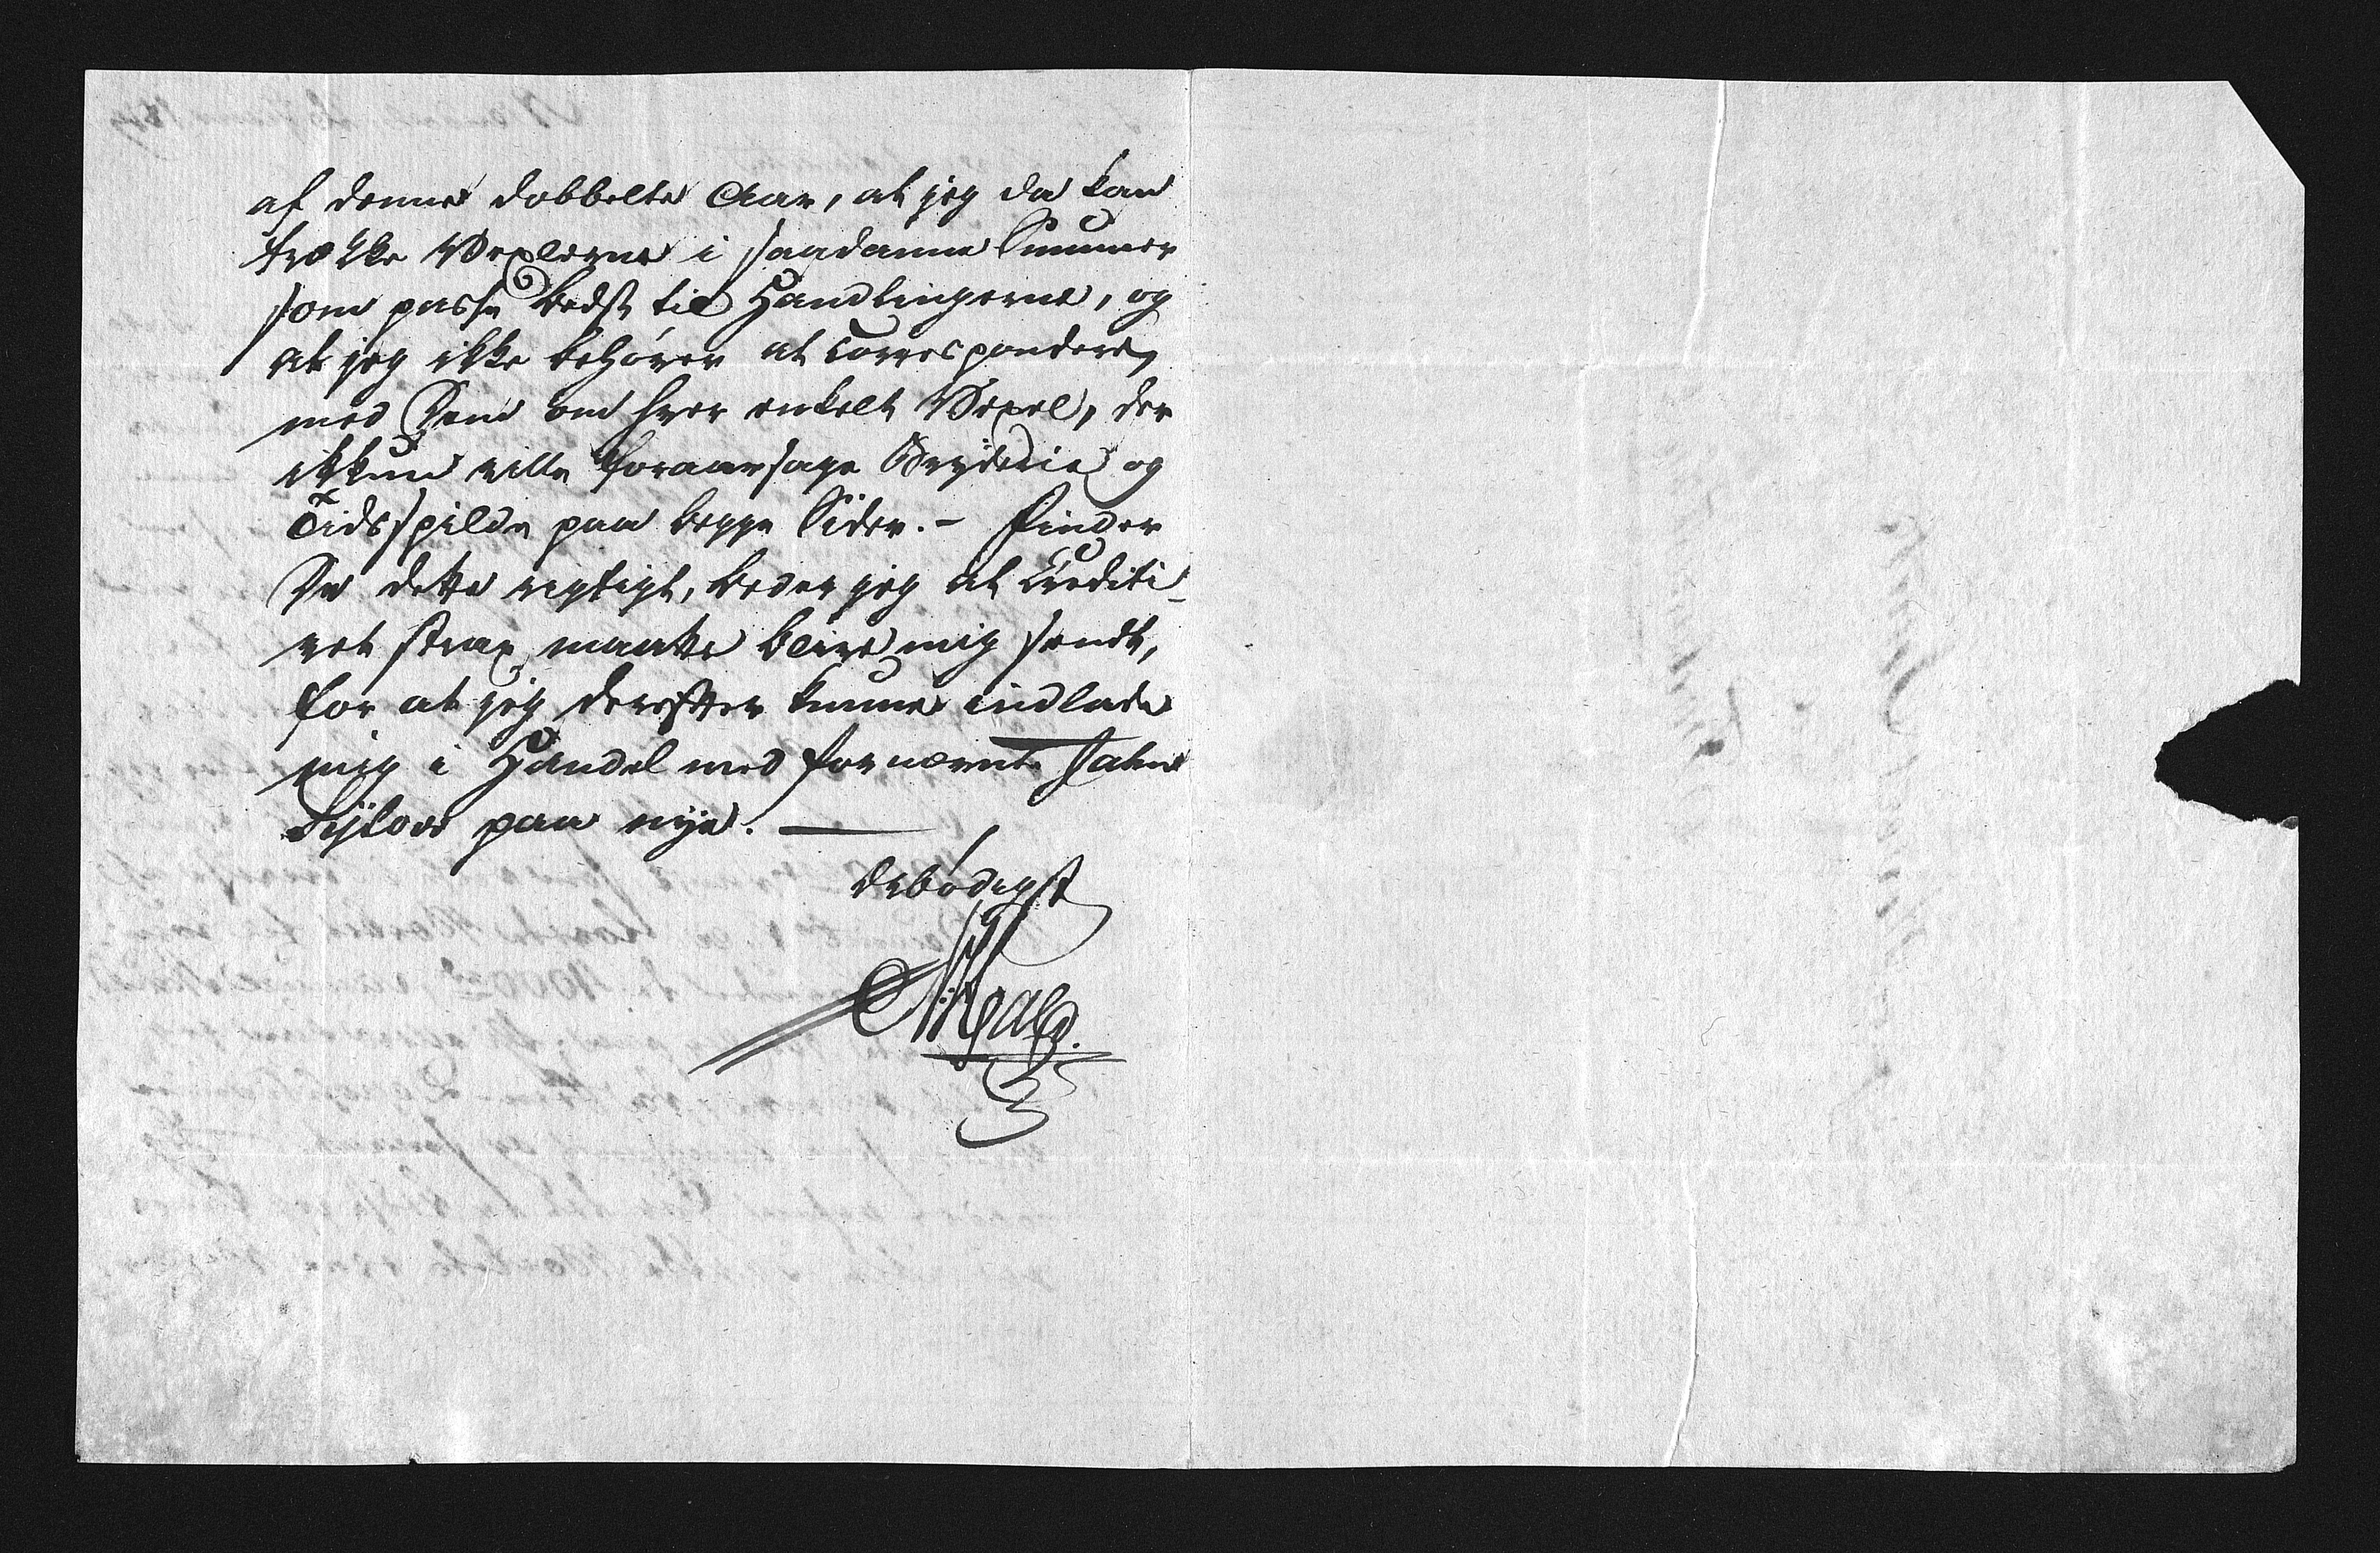 af denne dobbelte Aar, at jeg da kan
trække Vexlerne i saadanne Summer
som passe bedst til Handlingerne, og
at jeg ikke behøver at correspondere
med Dem om hver enkelt Vexel, der
ikkun ville foraarsage Bryderie og
Tidsspilde paa begge Sider. - Finder
De dette rigtigt, beder jeg at Crediti-
vet strax maatte blive mig sendt,
for at jeg derefter kunne indlade
mig i Handel med fornævnte
paa nye. —
ærbødigst